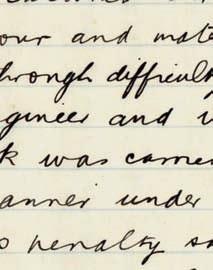 our and mate
through difficult
gineer and w
k was carried
anner under
s penalty so